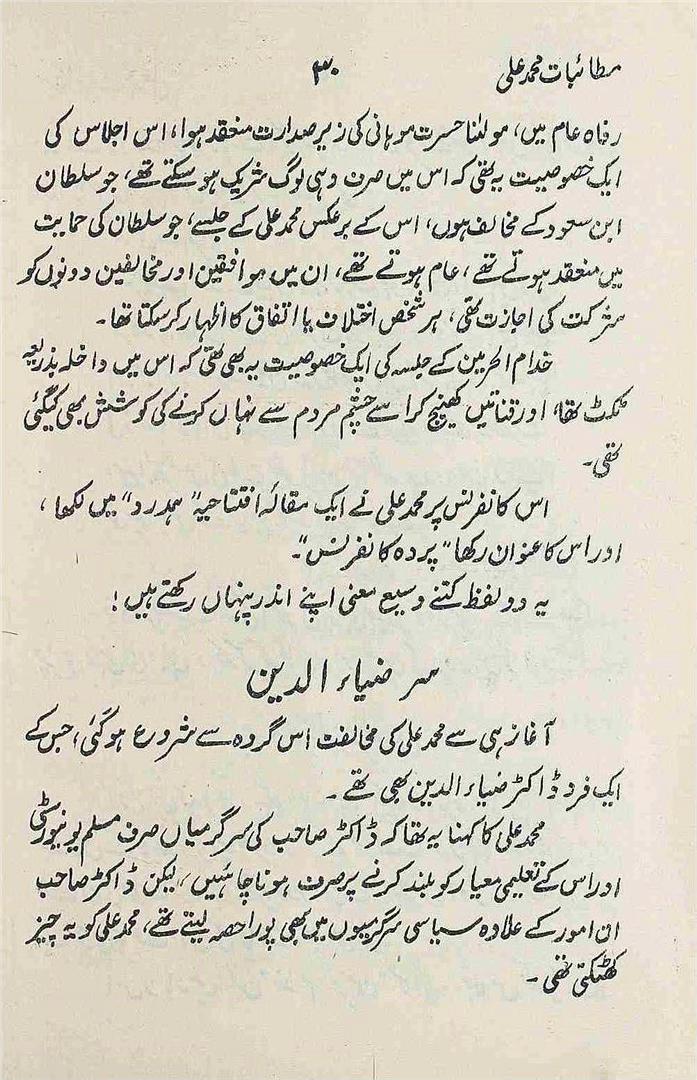 مطائبات محمد علی
۳۰
رفاہ عام میں، مولٰنا حسرت موہانی کی زیر صدارت منعقد ہوا، اس اجلاس کی
ایک خصوصیت یہ تھی کہ اس میں صرف وہی لوگ شریک ہو سکتے تھے، جو سلطان
ابن سعود کے مخالف ہوں، اس کے برعکس محمد علی کے جلسے، جو سلطان کی حمایت
میں منعقد ہوتے تھے، عام ہوتے تھے، ان میں موافقین اور مخالفین دونوں کو
شرکت کی اجازت تھی، ہر شخص اختلاف یا اتفاق کا اظہار کر سکتا تھا۔
خدام الحرمین کے جلسہ کی ایک خصوصیت یہ بھی تھی کہ اس میں داخلہ بذریعہ
ٹکٹ تھا، اور قناتیں کھینچ کر اسے چشم مردم سے نہاں کرنے کی کوشش بھی کیگئی
تھی۔
اس کانفرنس پر محمد علی نے ایک مقالہ افتتاحیہ "ہمدرد" میں لکھا،
اور اس کا عنوان رکھا "پردہ کانفرنس"۔
یہ دو لفظ کتنے وسیع معنی اپنے اندر پنہاں رکھتے ہیں!
سر ضیاء الدین
آغاز ہی سے محمد علی کی مخالفت اس گروہ سے شروع ہو گئی، جس کے
ایک فرد ڈاکٹر ضیاء الدین بھی تھے۔
محمد علی کا کہنا یہ تھا کہ ڈاکٹر صاحب کی سرگرمیاں صرف مسلم یونیورسٹی
اور اس کے تعلیمی معیار کو بلند کرنے پر صرف ہونا چاہئیں، لیکن ڈاکٹر صاحب
ان امور کے علاوہ سیاسی سرگرمیوں میں بھی پورا حصہ لیتے تھے، محمد علی کو یہ چیز
کھٹکتی تھی۔